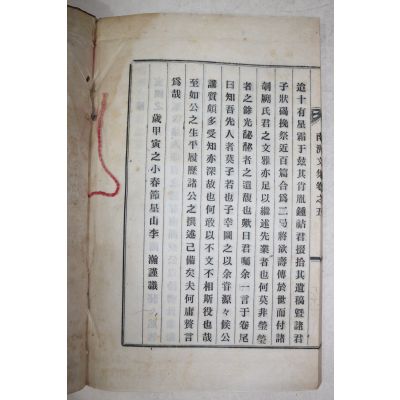 南洲文集卷之五
逌十有星霜于玆其胄胤鍾祜君掇拾其遺稿曁諸君
子狀碣挽祭近百篇合爲二弓將欲壽傳於世而付諸
剞劂氏君之文雅亦足以繼述先業者也何莫非瑩瑩
者之餘光馝馝者之遺馥也歟日君囑余一言于卷尾
曰知吾先人者莫子若也子幸圖之以余嘗源々候公
謹質頗多受知亦深故也何敢以不文不相斯役也哉
至如公之生平履歷諸公之撰述已備矣夫何庸贅言
爲哉
歲甲寅之小春節星山李 瀚謹識